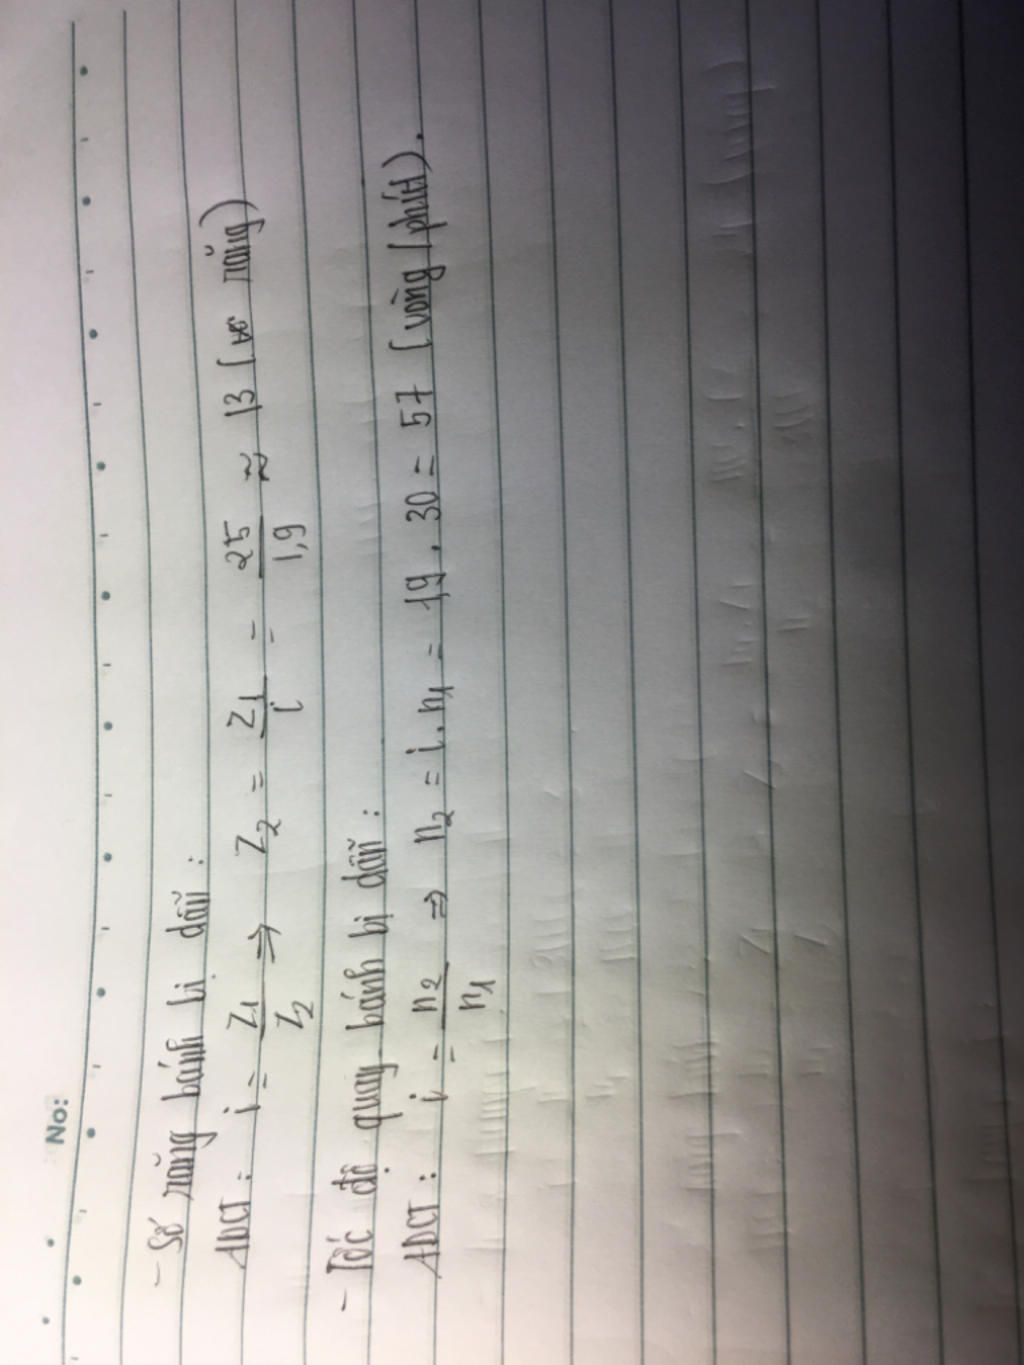 No:
- Số răng bánh bị dẫn :
ADCT : i = Z1/Z2 ⇒ Z2 = Z1/i = 25/1,9 ≈ 13 ( răng)
- Tốc độ quay bánh bị dẫn :
ADCT : i = n2/n1 ⇒ n2 = i . n1 = 1,9 . 30 = 57 (vòng/phút).